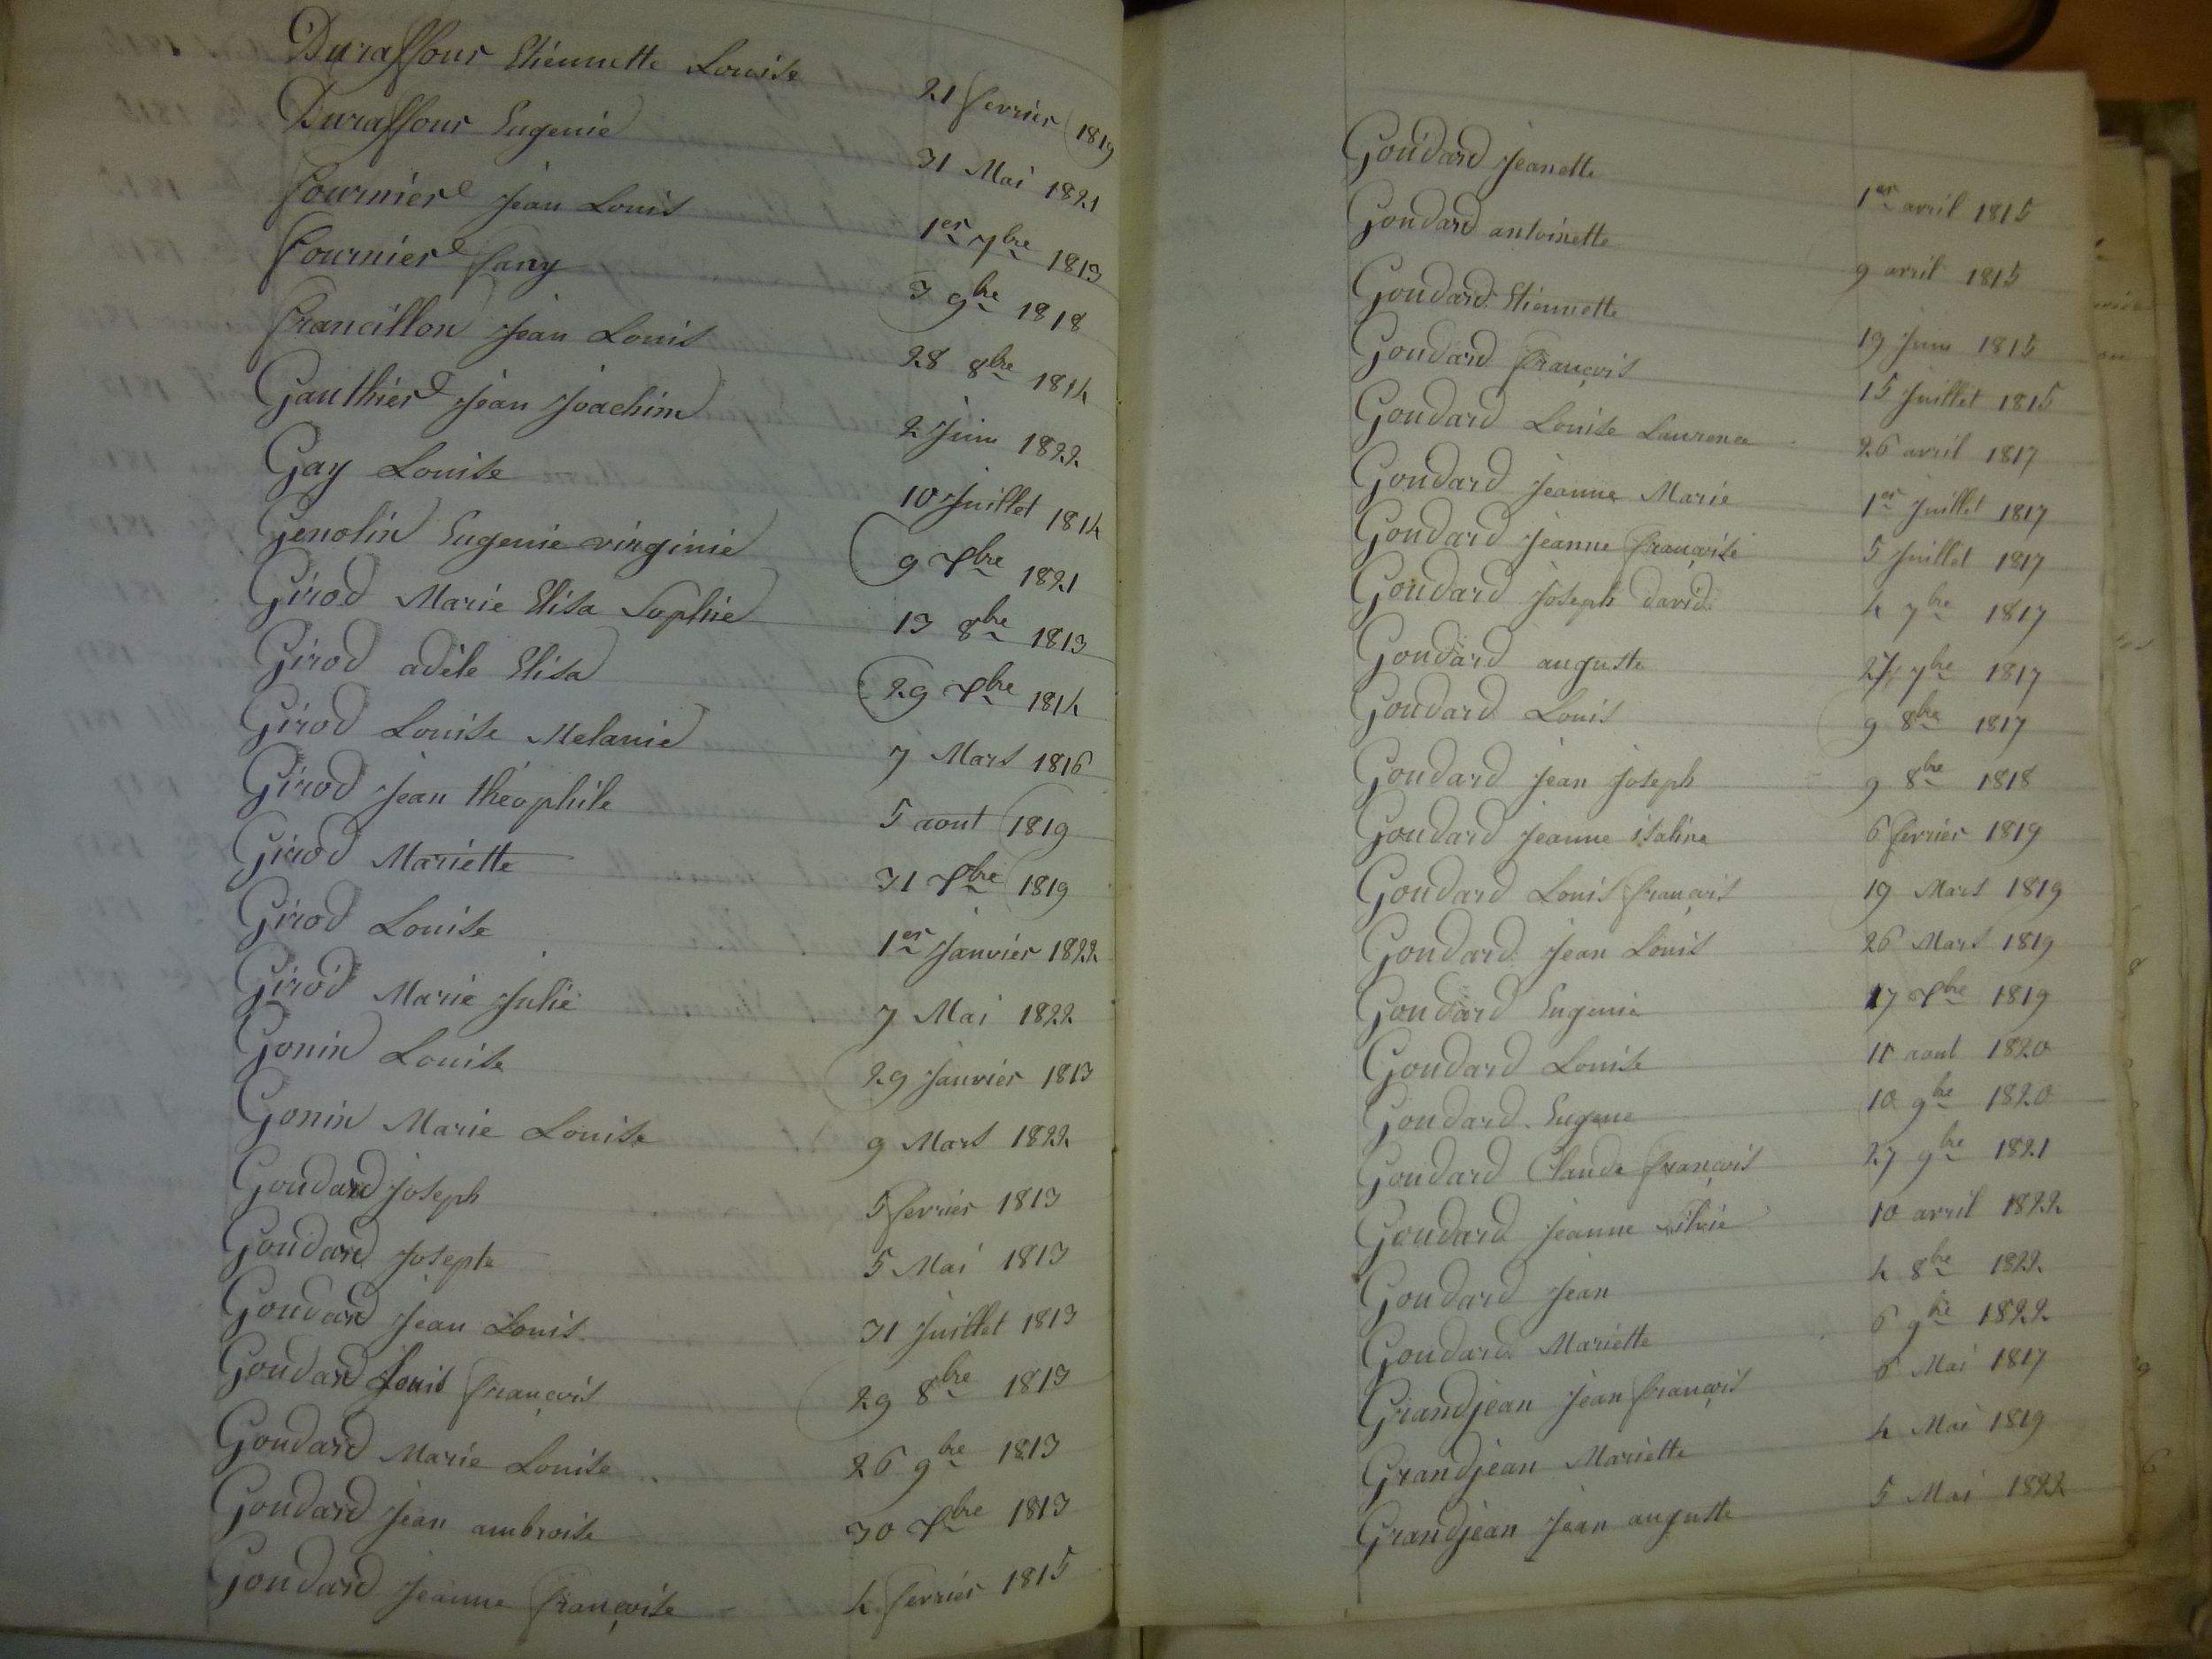 Duraffour Etiennette Louise 21 fevrier 1819
Duraffour Eugenie 31 Mai 1821
fournier Jean Louis 1er 7bre 1813
fournier fany 3 9bre 1818
francillon Jean Louis 28 8bre 1814
Gauthier Jean Joachim 2 Juin 1822
Gay Louise 10 Juillet 1814
Genolin Eugenie virginie 9 Xbre 1821
Girod Marie Elisa Sophie 13 8bre 1813
Girod adèle Elisa 29 Xbre 1814
Girod Louise Melanie 7 Mars 1816
Girod Jean théophile 5 aout 1819
Girod Mariette 31 Xbre 1819
Girod Louise 1er Janvier 1822
Girod Marie Julie 7 Mai 1822
Gonin Louise 29 Janvier 1813
Gonin Marie Louise 9 Mars 1822
Goudard Joseph 5 fevrier 1813
Goudard Josephe 5 Mai 1813
Goudard Jean Louis 31 Juillet 1813
Goudard Louis françois 29 8bre 1813
Goudard Marie Louise 26 9bre 1813
Goudard Jean ambroise 30 Xbre 1813
Goudard Jeanne françoise 4 fevrier 1815
Goudard Jeanette 1er avril 1815
Goudard antoinette 9 avril 1815
Goudard Etiennette 19 Juin 1815
Goudard françois 15 Juillet 1815
Goudard Louise Laurence 26 avril 1817
Goudard Jeanne Marie 1er Juillet 1817
Goudard Jeanne françoise 5 Juillet 1817
Goudard Joseph david 4 7bre 1817
Goudard auguste 7bre 1817
Goudard Louis 9 8bre 1817
Goudard Jean Joseph 9 8bre 1818
Goudard Jeanne isaline 6 fevrier 1819
Goudard Louis françois 19 Mars 1819
Goudard Jean Louis 26 Mars 1819
Goudard Eugenie 17 Xbre 1819
Goudard Louise 11 aout 1820
Goudard Eugene 10 9bre 1820
Goudard Claude françois 27 9bre 1821
Goudard Jeanne Silvie 10 avril 1822
Goudard Jean 4 8bre 1822
Goudard Mariette 6 9bre 1822
Grandjean Jean françois 6 Mai 1817
Grandjean Mariette 4 Mai 1819
Grandjean Jean auguste 5 Mai 1822